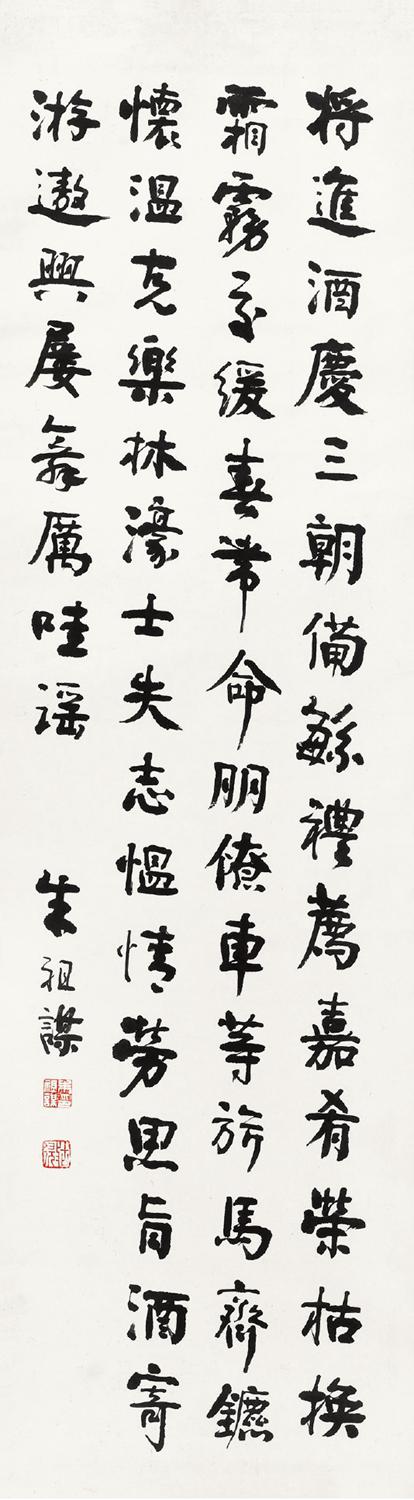 將進酒慶三朝備緐禮薦嘉肴榮枯換
霜霧交緩春帶命朋僚車等旂馬齊鑣
懷溫克樂林濠士失志慍情勞思旨酒寄
游遨興屢舞厲哇謡
朱祖謀